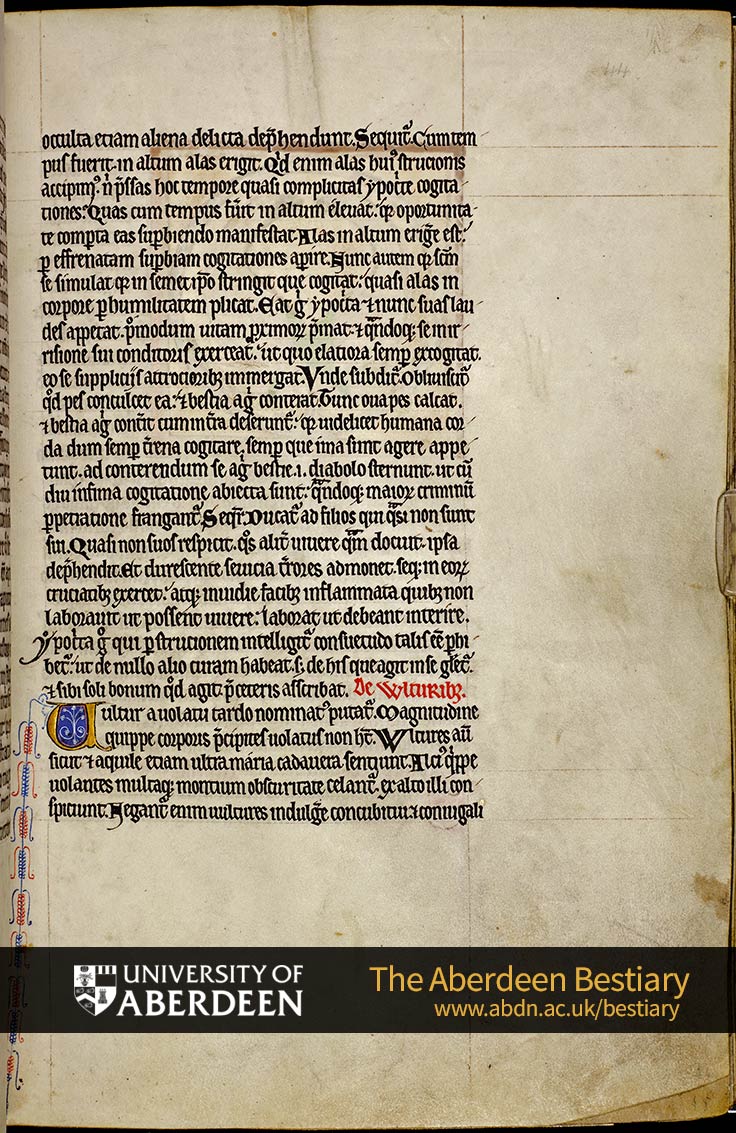 44
occulta etiam aliena delicta dep̄hendunt. Sequit᷑. Cum tem
pus fuerit. in altum alas erigit. Qd̓ enim alas huiꝰ strucionis
accipimꝰ. n̓ p̄ssas hoc tempore quasi complicitas ypoc̓te cogita
tiones: Quas cum tempus fu̓it in altum eleuat: ꝙ oportunita
te comp̄ta eas suꝑbiendo manifestat. Alas in altum erig̓e est:
ꝑ effrenatam suꝑbiam cogitationes aꝑire. Nunc autem qꝛ sc̄m
se simulat qꝛ in semet ip̄o stringit que cogitat: quasi alas in
corpore ꝑ humilitatem plicat. Eat g̓ ypoc̓ta ⁊ nunc suas lau
des appetat. p̓modum uitam ꝓximoꝝ p̄mat. ⁊ qn̄doqꝫ se in ir
risione sui conditoris exerceat. ut quo elatiora semꝑ excogitat.
eo se suppliciis atrocioribꝫ immergat. Vnde subdit᷑. Obliuiscit᷑
qd̓ pes conculcet ea: ⁊ bestia ag̓ conterat. Tunc oua pes calcat.
⁊ bestia ag̓ cont̓it cum in t̓ra deserunt᷑: qꝛ uidelicet humana cor
da dum semꝑ t̓rena cogitare, semꝑ que ima sunt agere appe
tunt. ad conterendum se ag̓ bestie .i. diabolo sternunt. ut cū
diu infima cogitatione abiecta sunt: qn̄doqꝫ maioꝝ criminū
ꝑpetratione frangant᷑. Seqt᷑. Durat᷑ ad filios qui q̄si non sunt
sui. Quasi non suos respicit. q̓s alit̓ uiuere q̄m docuit. ipsa
dep̄hendit. Et durescente seuicia t̓rores admonet. seqꝫ in eoꝝ
cruciatibꝫ exercet: atqꝫ inuidie facibꝫ inflammata quibꝫ non
laborauit ut possent uiuere: laborat ut debeant interire.
ypoc̓ta g̓ qui ꝑ strucionem intelligit᷑ consuetudo talis ee̓ ꝑhi
bet᷑: ut de nullo alio curam habeat. sꝫ de his que agit in se gl̓et᷑.
⁊ sibi soli bonum qd̓ agit p̄ceteris asscribat. De wlturibꝫ.
Uultur a uolatu tardo nominatꝰ putat᷑. Magnitudine
quippe corporis p̄cipites uolatus non ht̄. Wltures aū
sicut ⁊ aquile etiam ultra maria cadauera sentiunt. Alciꝰ q̓ppe
uolantes multaqꝫ montium obscuritate celant᷑. ex alto illi con
spiciunt. Negant᷑ enim uultures indulg̓e concubitui ⁊ coniugali
UNIVERSITY OF
ABERDEEN
The Aberdeen Bestiary
www.abdn.ac.uk/bestiary